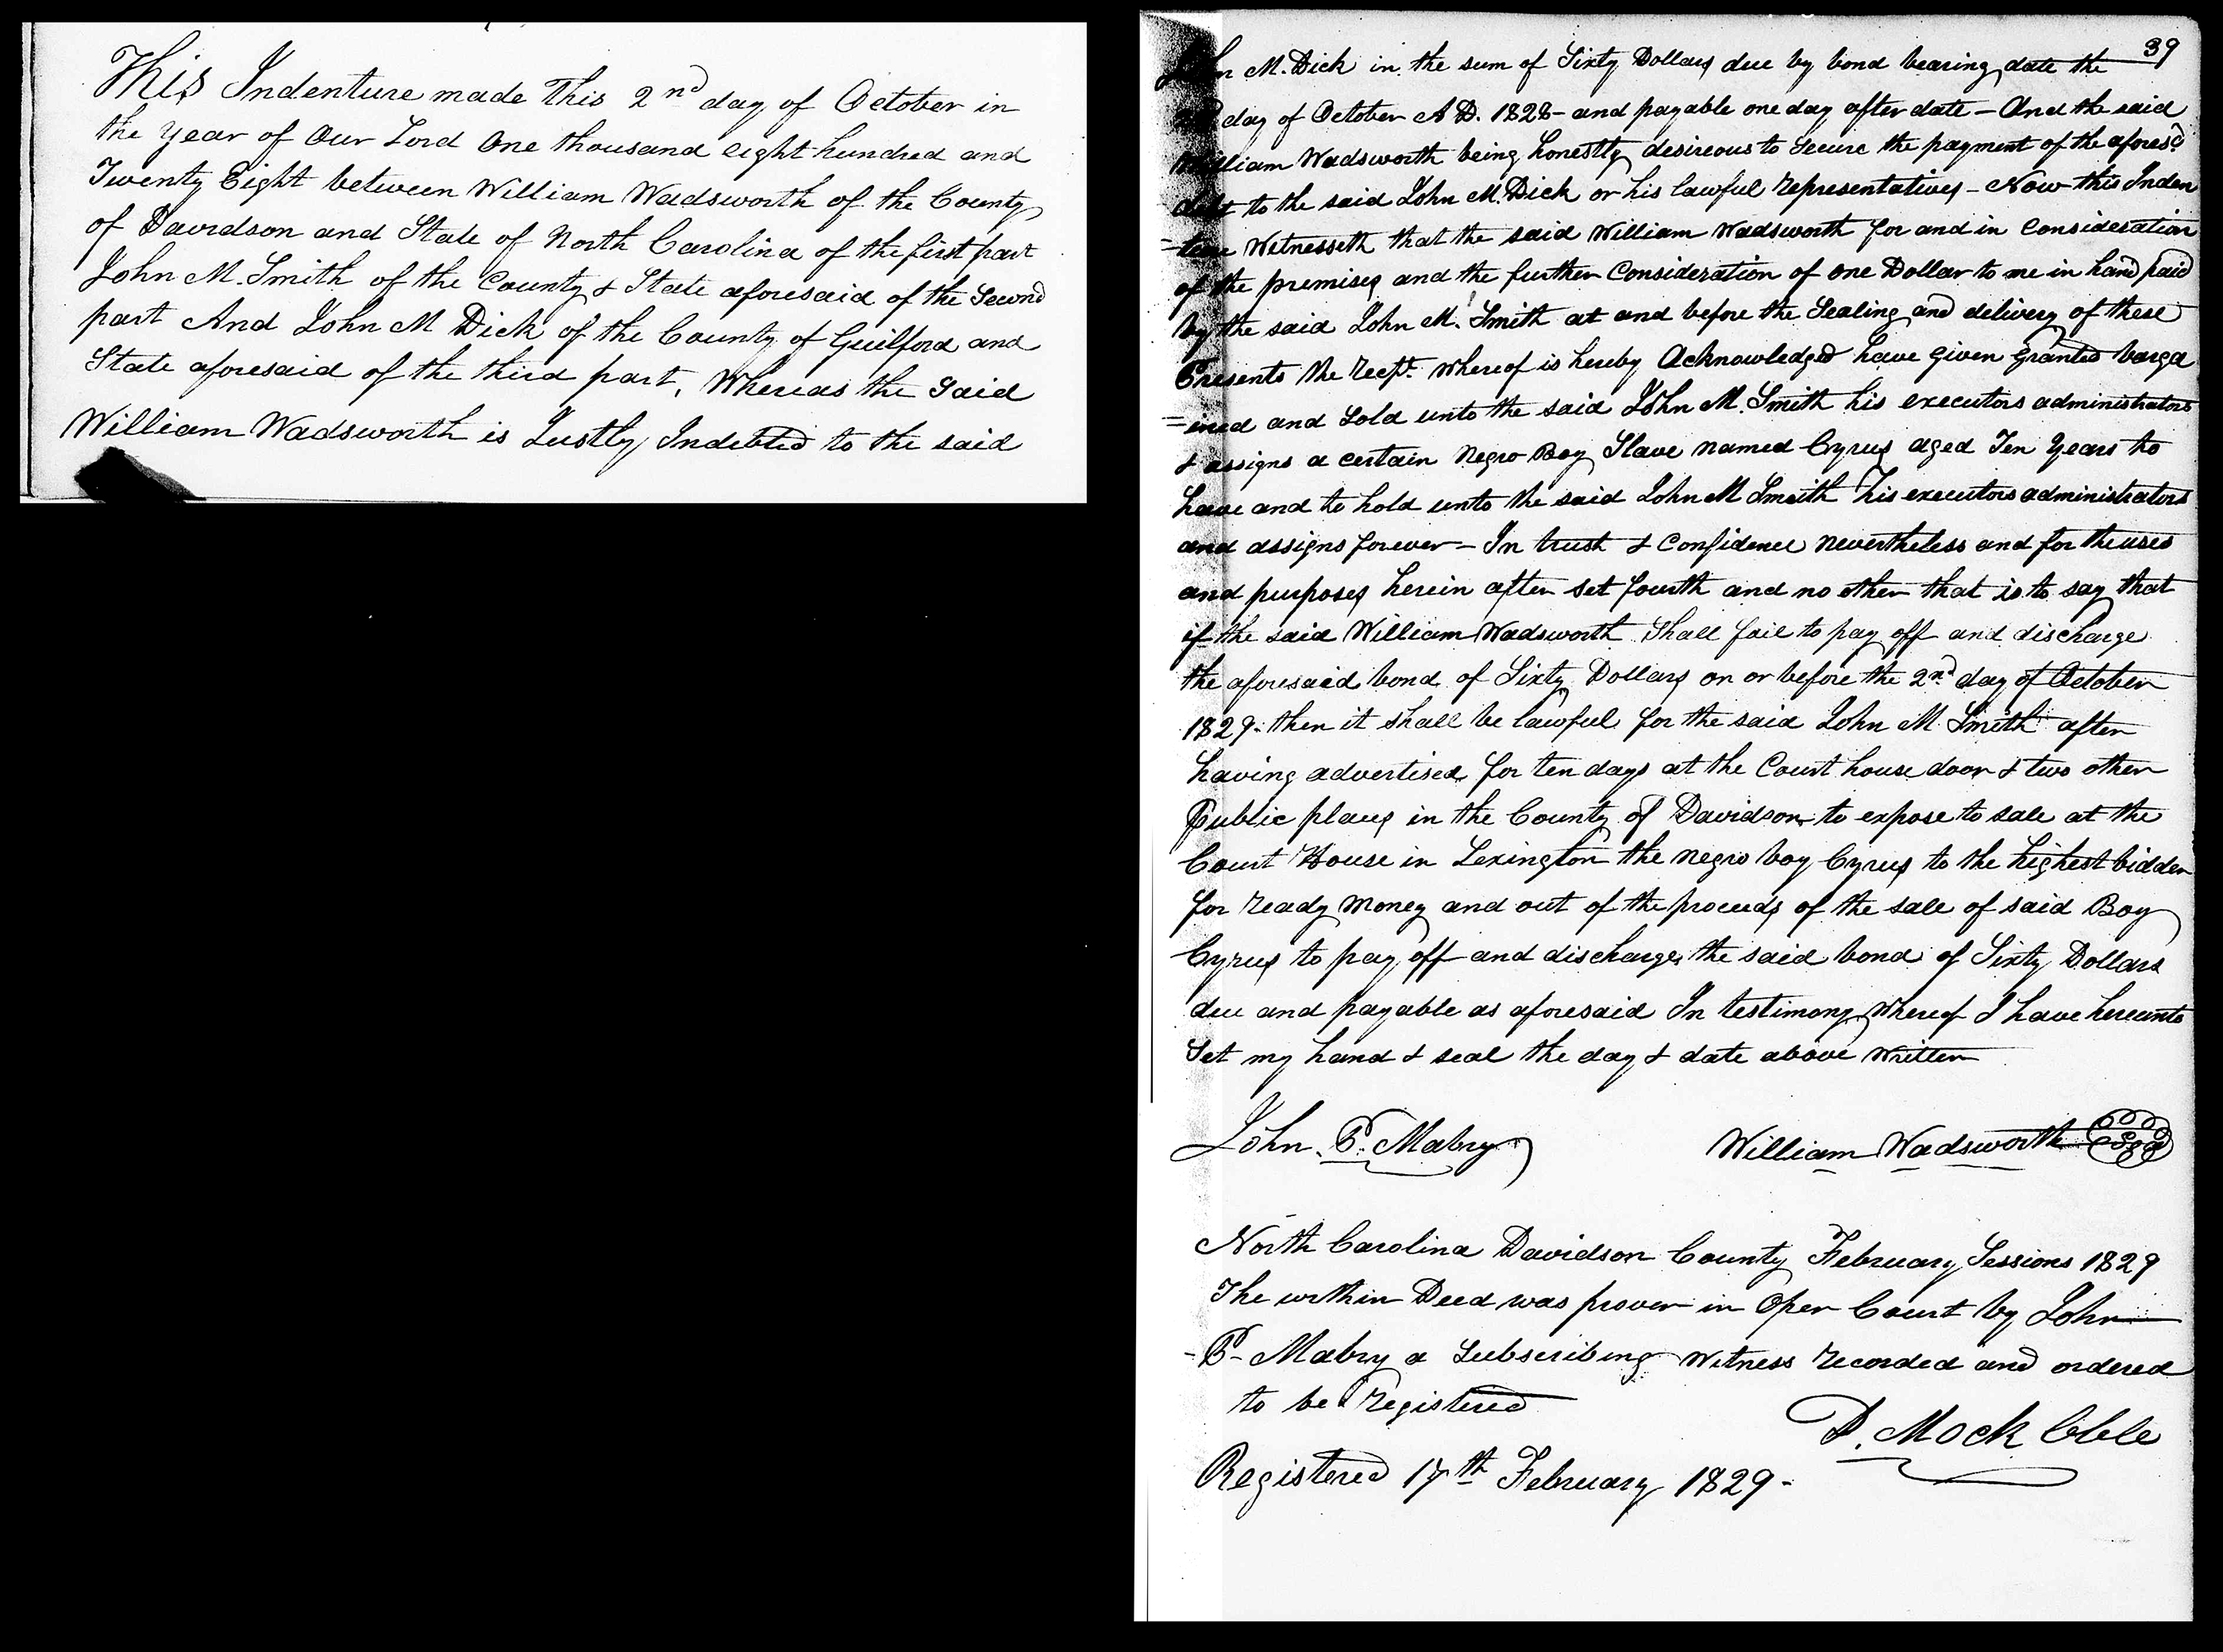 This Indenture made This 2nd day of October in
the Year of Our Lord One thousand eight hundred and
Twenty Eight between William Wadsworth of the County
of Davidson and State of North Carolina of the first part
John M. Smith of the County & State aforesaid of the Second
part And John M Dick of the County of Guilford and
State aforesaid of the third part, Whereas the Said
William Wadsworth is Justly Indebted to the said
39
John M. Dick in the sum of Sixty Dollars due by bond bearing date the
day of October A D. 1828 - and payable one day after date - And the said
William Wadsworth being honestly desireous to Secure the payment of the aforesd
debt to the said John M. Dick or his lawful representatives - Now this Inden
=ture Witnesseth that the said William Wadsworth for and in Consideration
of the premises and the further Consideration of one Dollar to me in hand paid
by the said John M. Smith at and before the Sealing and delivery of these
Presents the Rect. whereof is hereby Acknowledged have given granted barga
=ined and Sold unto the said John M. Smith his executors administrators
& assigns a certain Negro Boy Slave named Cyrus aged Ten Years to
have and to hold unto the said John M Smith his executors administrators
and assigns forever - In trust & Confidence nevertheless and for the uses
and purposes herein after set fourth and no other that is to say that
if the said William Wadsworth Shall fail to pay off and discharge
the aforesaid bond of Sixty Dollars on or before the 2nd day of October
1829. then it shall be lawful for the said John M. Smith after
having advertised for ten days at the Court house door & two other
Public places in the County of Davidson to expose to sale at the
Court House in Lexington the negro boy Cyrus to the highest bidder
for ready money and out of the proceeds of the sale of said Boy
Cyrus to pay off and discharge the said bond of Sixty Dollars
due and payable as aforesaid In testimony whereof I have hereunto
Set my hand & seal the day & date above written
John. P. Mabry William Wadsworth Seal
North Carolina Davidson County February Sessions 1829
The within Deed was proven in Open Court by John
-P- Mabry a Subscribing Witness recorded and ordered
to be Registered
D. Mock Clk
Registered 17th February 1829-